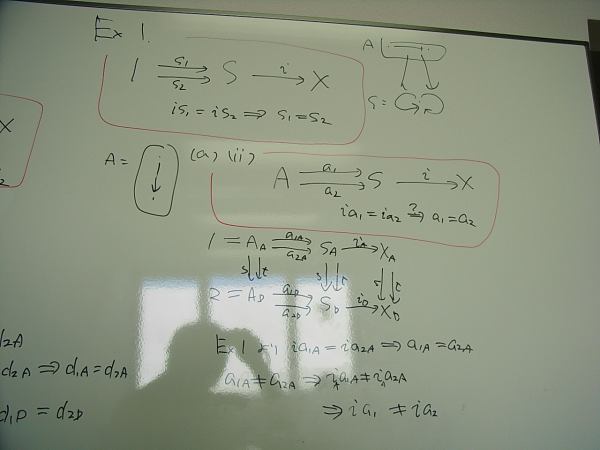 Ex 1.
1 ⇉ S → X
s₁ s₂ i
is₁ = is₂ ⇒ s₁ = s₂
A
S =
X
A =
(a) (ii)
A ⇉ S → X
a₁ a₂ i
ia₁ = ia₂ ⇒? a₁ = a₂
1 = A_A ⇉ S_A → X_A
a₁A a₂A i_A
s t s t
2 = A_D ⇉ S_D → X_D
a₁D a₂D i_D
Ex 1 より ia₁A = ia₂A ⇒ a₁A = a₂A
a₁A ≠ a₂A ⇒ i_A a₁A ≠ i_A a₂A
⇒ ia₁ ≠ ia₂
d₂A
d₂A ⇒ d₁A = d₂A
d₁D = d₂D